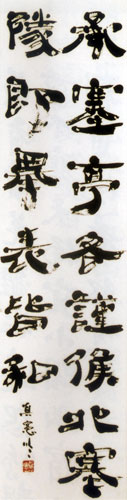 承塞亭各謹候北塞
隧即舉表皆和